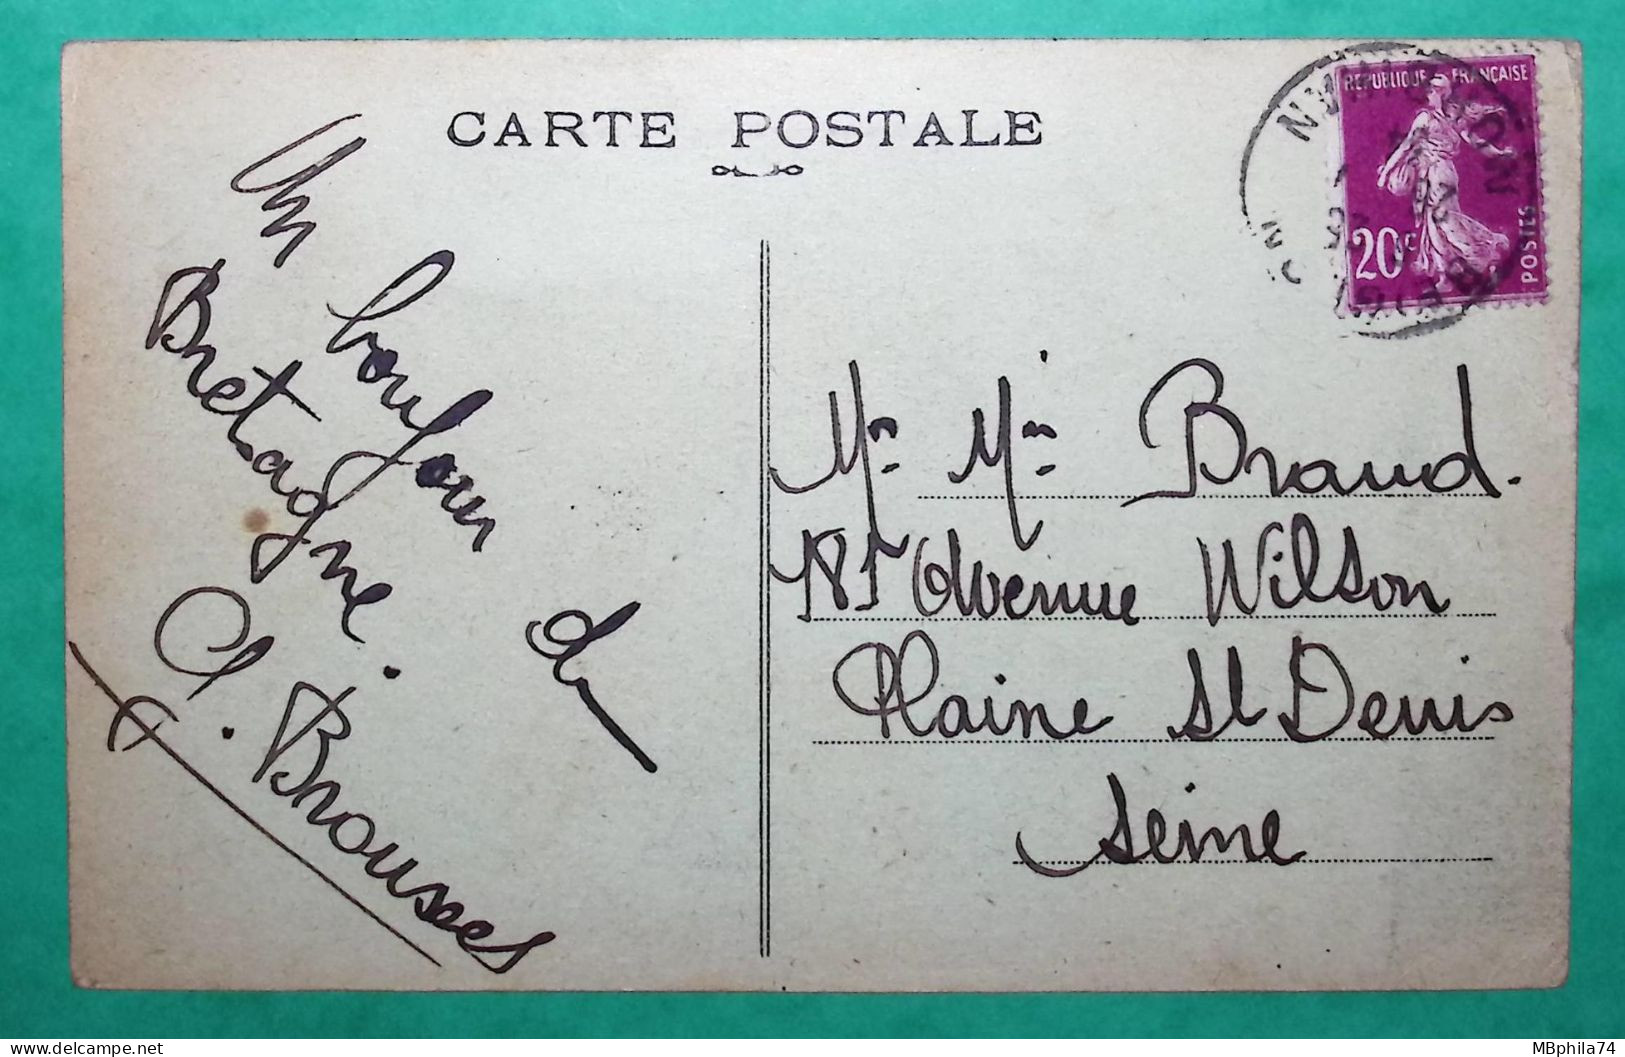 CARTE POSTALE
REPUBLIQUE FRANÇAISE
20c
POSTES
Un bonjour de
Bretagne.
C. Brousses
Mr Mme Braud.
181 Avenue Wilson
Plaine St Denis
Seine
MBphila74